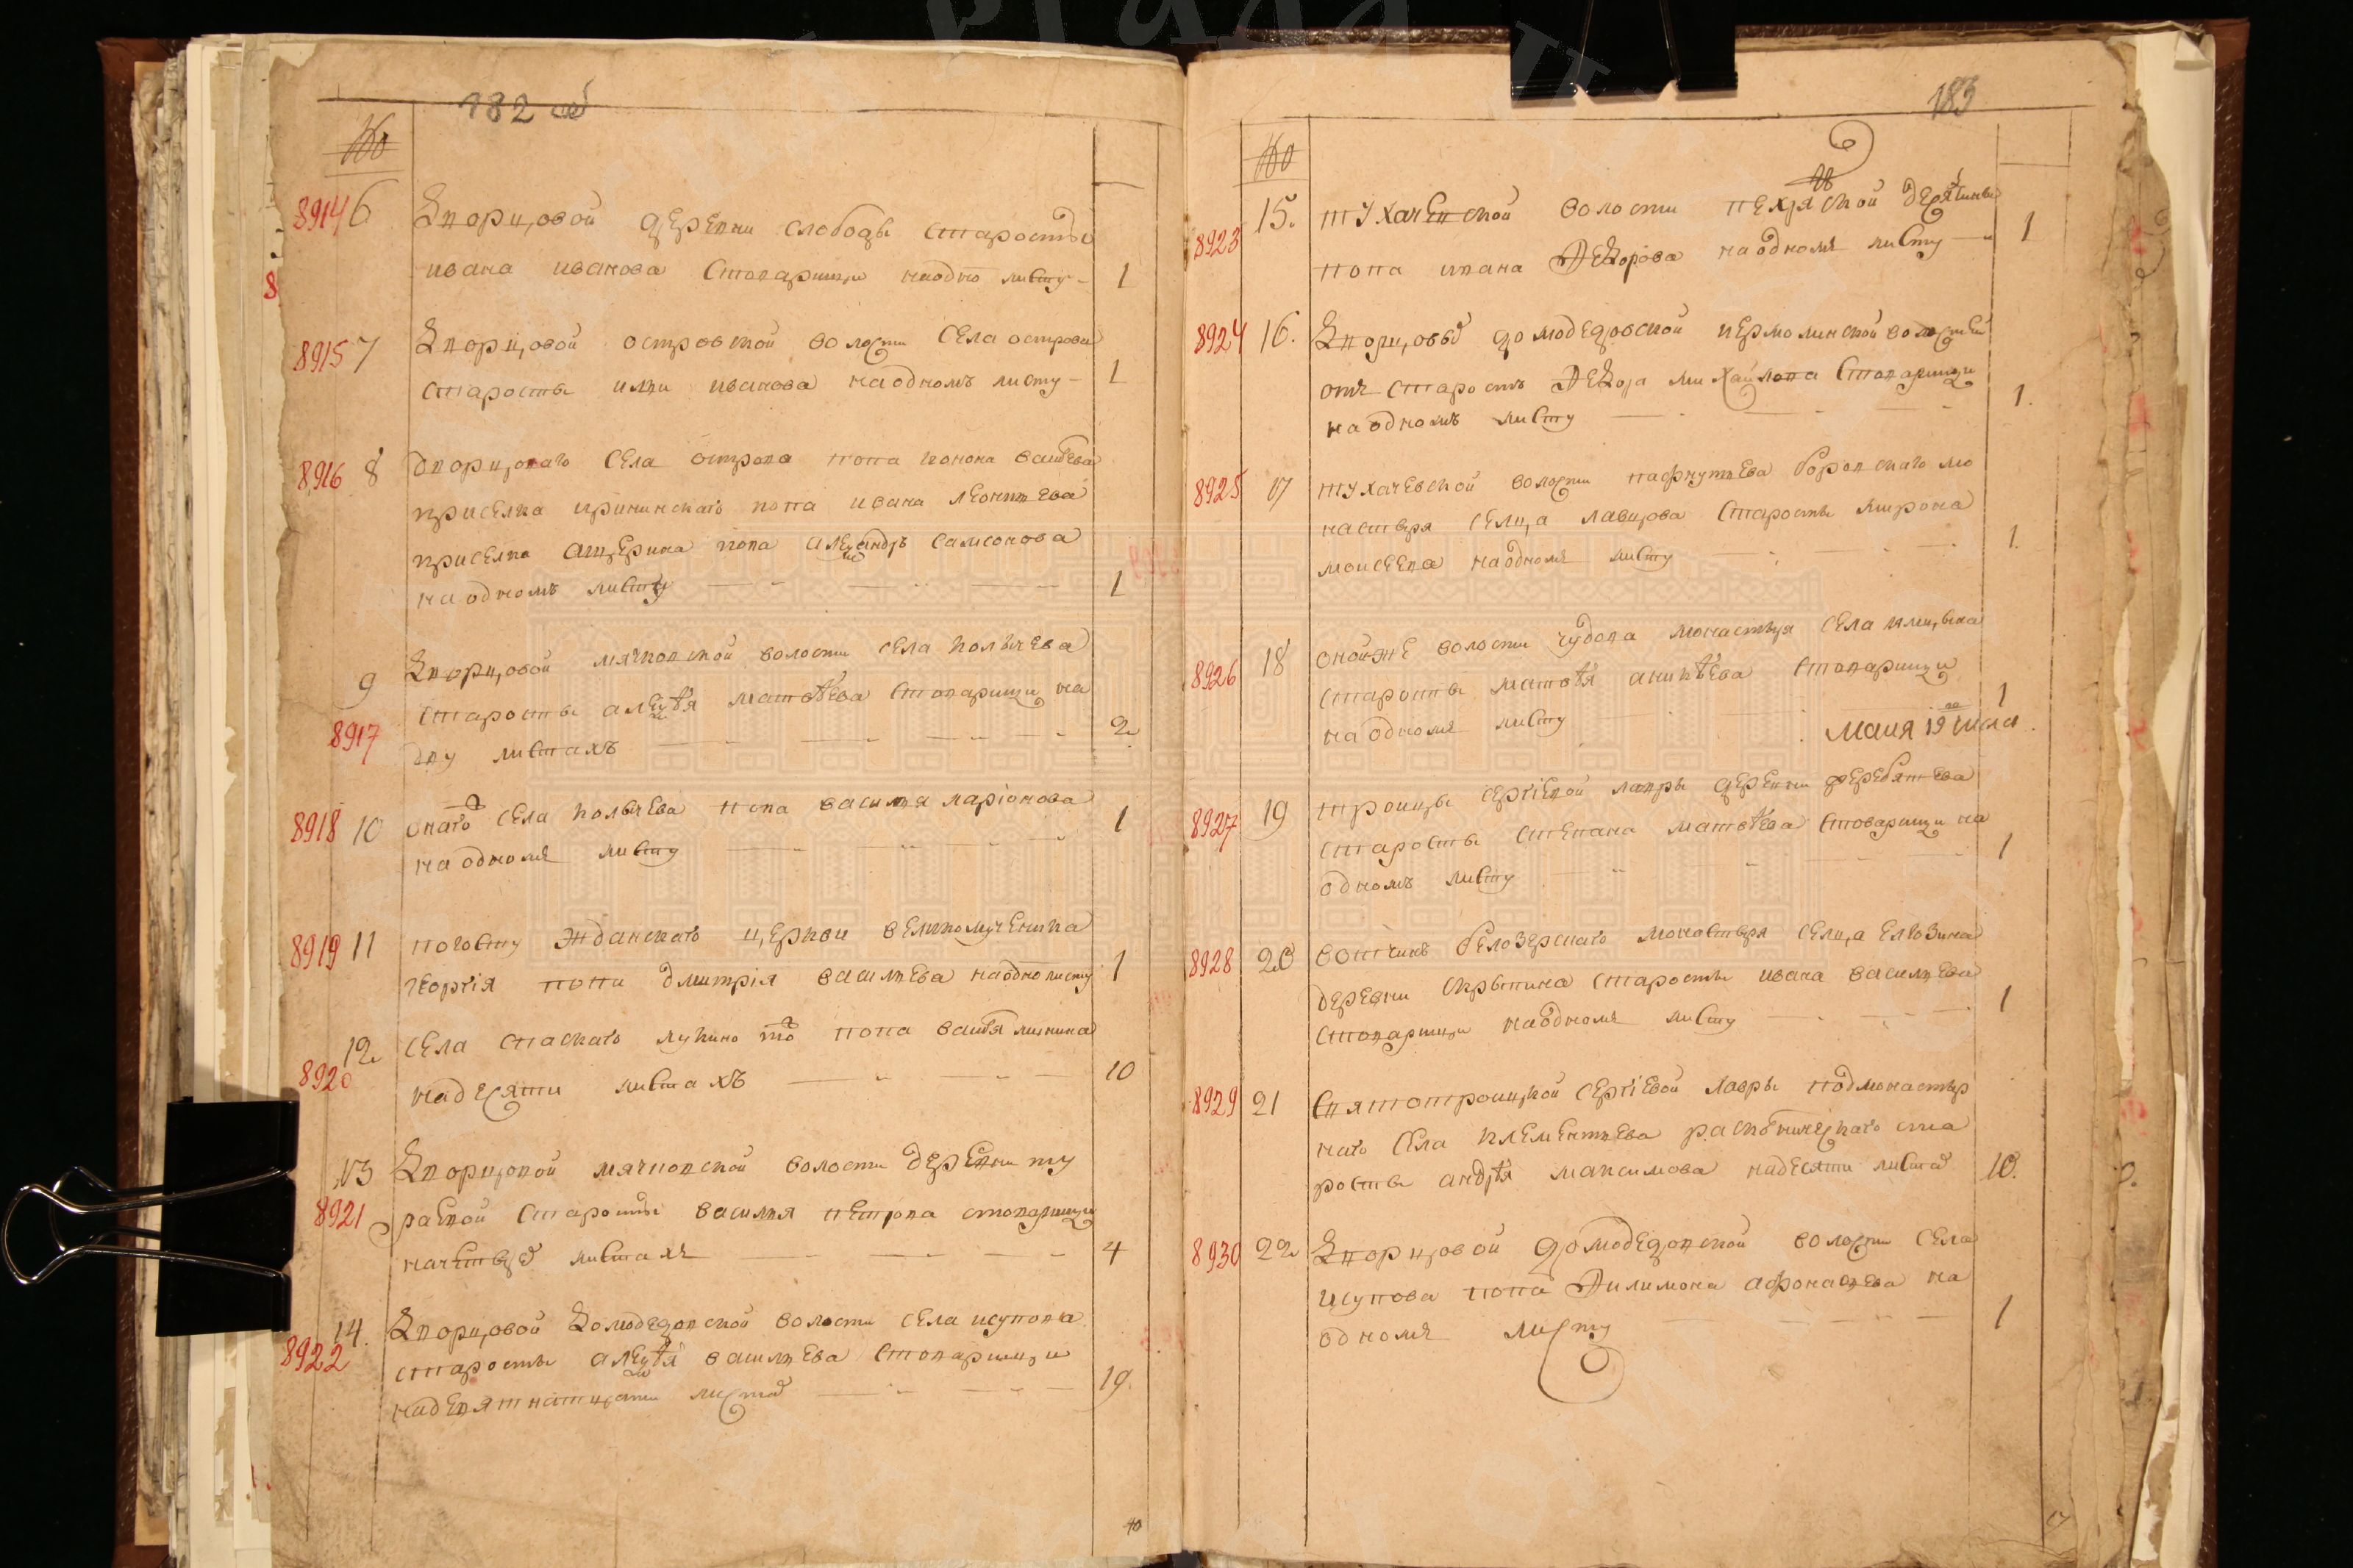 182 об
№
8914 6 Дворцовой деревни слободы старосты
ивана иванова стоварищи наодно листу - 1
8915 7 Дворцовой островской волости села острова
старосты или иванова наодномъ листу - 1
8916 8 дворцоваго села острова попа конона василева
приселка ирининскаго попа ивана леонтьева
приселка ащерина попа алеѯандръ самсонова
наодномъ листу 1
9 Дворцовой мячковской волости села колычева
старосты алеѯѣя матвѣева стоварищи на
8917 дву листахъ 2
8918 10 онаго села колычева попа василья ларіонова
наодномъ листу 1
8919 11 погосту жданскаго церкви великомученика
георгія попа дмитрія васильева наодно листу 1
12 села спаскаго лукино то попа василя минина
8920 надесяти листахъ 10
13 Дворцовой мячковской волости деревни ту
8921 раевой старосты василья петрова стоварищи
начетырѣ листахъ 4
14. Дворцовой домодедовской волости села исупова
8922 старосты алеѯѣя васильева стоварищи
надевятнатцати листа 19.
40
183
№
15. тухачевской волости пехрской десятины
8923 попа ивана Ѳедорова наодномъ листу 1
8924 16. Дворцовы домодедовской иермолинской волостей
отъ старостъ Ѳедора михайлова стоварищи
наодномъ листу 1.
8925 17 тухачевской волости пафнутьева боровскаго мо
настыря селца лавцова старосты мирона
моисеева наодномъ листу 1.
8926 18 онойже волости чудова монастыря села
старосты матвѣя аникѣева стоварищи
наодномъ листу 1
маия 19 числа
8927 19 троицы сергіевой лавры деревни жеребятева
старосты степана матвѣева стоварищи на
одномъ листу 1
8928 20 вотчинъ белозерскаго монастыря селца елвозина
деревни скрыпина старосты ивана васильева
стоварищи наодномъ листу 1
8929 21 святотроицкой сергіевой лавры подмонастыр
наго села клементьева раскольническаго ста
росты андрѣя максимова надесяти листа 10.
8930 22 Дворцовой домодедовской волости села
исупова попа Ѳилимона афонасьева на
одномъ листу 1